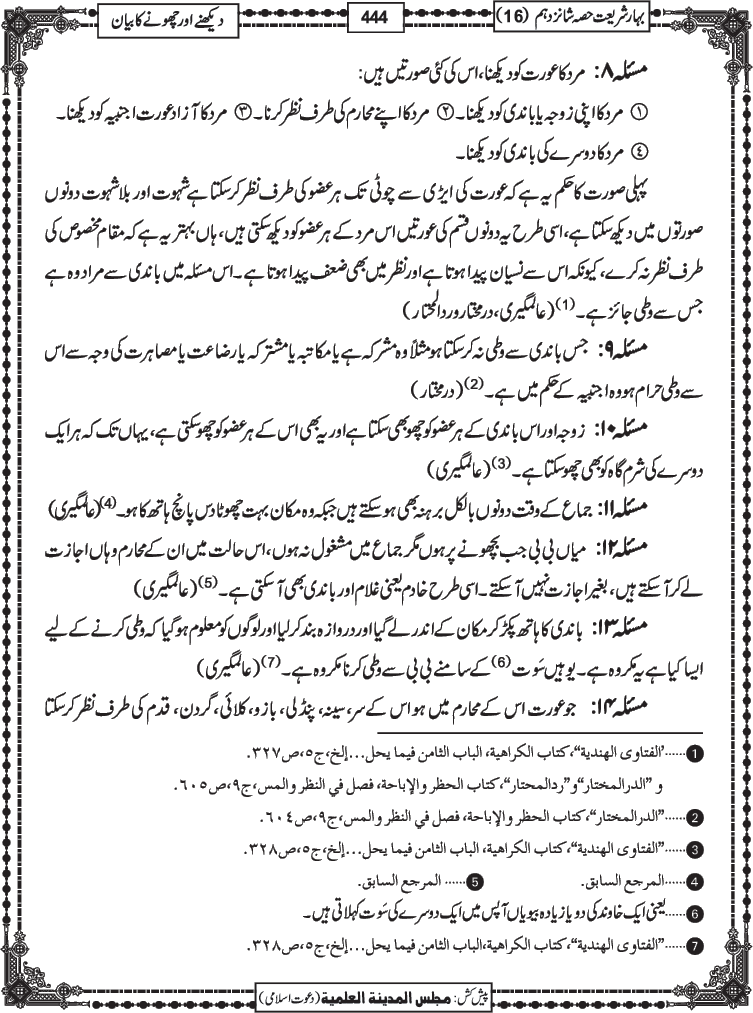 بہارِشریعت حصہ شانزدہم (16)
444
دیکھنے اور چھونے کا بیان
مسئلہ ۸: مرد کا عورت کو دیکھنا، اس کی کئی صورتیں ہیں:
① مرد کا اپنی زوجہ یا باندی کو دیکھنا۔ ② مرد کا اپنے محارم کی طرف نظر کرنا۔ ③ مرد کا آزاد عورت اجنبیہ کو دیکھنا۔
④ مرد کا دوسرے کی باندی کو دیکھنا۔
پہلی صورت کا حکم یہ ہے کہ عورت کی ایڑی سے چوٹی تک ہر عضو کی طرف نظر کر سکتا ہے شہوت اور بلا شہوت دونوں
صورتوں میں دیکھ سکتا ہے، اسی طرح یہ دونوں قسم کی عورتیں اس مرد کے ہر عضو کو دیکھ سکتی ہیں، ہاں بہتر یہ ہے کہ مقام مخصوص کی
طرف نظر نہ کرے، کیونکہ اس سے نسیان پیدا ہوتا ہے اور نظر میں بھی ضعف پیدا ہوتا ہے۔ اس مسئلہ میں باندی سے مراد وہ ہے
جس سے وطی جائز ہے۔(1) (عالمگیری، درمختار وردالمحتار)
مسئلہ ۹: جس باندی سے وطی نہ کر سکتا ہو مثلاً وہ مشرکہ ہے یا مکاتبہ یا مشترکہ یا رضاعت یا مصاہرت کی وجہ سے اس
سے وطی حرام ہو وہ اجنبیہ کے حکم میں ہے۔(2) (درمختار)
مسئلہ ۱۰: زوجہ اور اس باندی کے ہر عضو کو چھو بھی سکتا ہے اور یہ بھی اس کے ہر عضو کو چھو سکتی ہے، یہاں تک کہ ہر ایک
دوسرے کی شرم گاہ کو بھی چھو سکتا ہے۔(3) (عالمگیری)
مسئلہ ۱۱: جماع کے وقت دونوں بالکل برہنہ بھی ہو سکتے ہیں جبکہ وہ مکان بہت چھوٹا دس پانچ ہاتھ کا ہو۔(4) (عالمگیری)
مسئلہ ۱۲: میاں بی بی جب بچھونے پر ہوں مگر جماع میں مشغول نہ ہوں، اس حالت میں ان کے محارم وہاں اجازت
لے کر آ سکتے ہیں، بغیر اجازت نہیں آ سکتے۔ اسی طرح خادم یعنی غلام اور باندی بھی آ سکتی ہے۔(5) (عالمگیری)
مسئلہ ۱۳: باندی کا ہاتھ پکڑ کر مکان کے اندر لے گیا اور دروازہ بند کر لیا اور لوگوں کو معلوم ہو گیا کہ وطی کرنے کے لیے
ایسا کیا ہے یہ مکروہ ہے۔ یوہیں سَوت(6) کے سامنے بی بی سے وطی کرنا مکروہ ہے۔(7) (عالمگیری)
مسئلہ ۱۴: جو عورت اس کے محارم میں ہو اس کے سر، سینہ، پنڈلی، بازو، کلائی، گردن، قدم کی طرف نظر کر سکتا
1......"الفتاوی الهندية"، كتاب الكراهية، الباب الثامن فيما يحل...إلخ، ج٥، ص٣٢٧.
و "الدرالمختار" و "ردالمحتار"، كتاب الحظر والإباحة، فصل في النظر والمس، ج٩، ص٦٠٥.
2......"الدرالمختار"، كتاب الحظر والإباحة، فصل في النظر والمس، ج٩، ص٦٠٤.
3......"الفتاوی الهندية"، كتاب الكراهية، الباب الثامن فيما يحل...إلخ، ج٥، ص٣٢٨.
4......المرجع السابق. 5...... المرجع السابق.
6......یعنی ایک خاوند کی دو یا زیادہ بیویاں آپس میں ایک دوسرے کی سَوت کہلاتی ہیں۔
7......"الفتاوی الهندية"، كتاب الكراهية، الباب الثامن فيما يحل...إلخ، ج٥، ص٣٢٨.
پیش کش: مجلس المدينة العلمية (دعوت اسلامی)